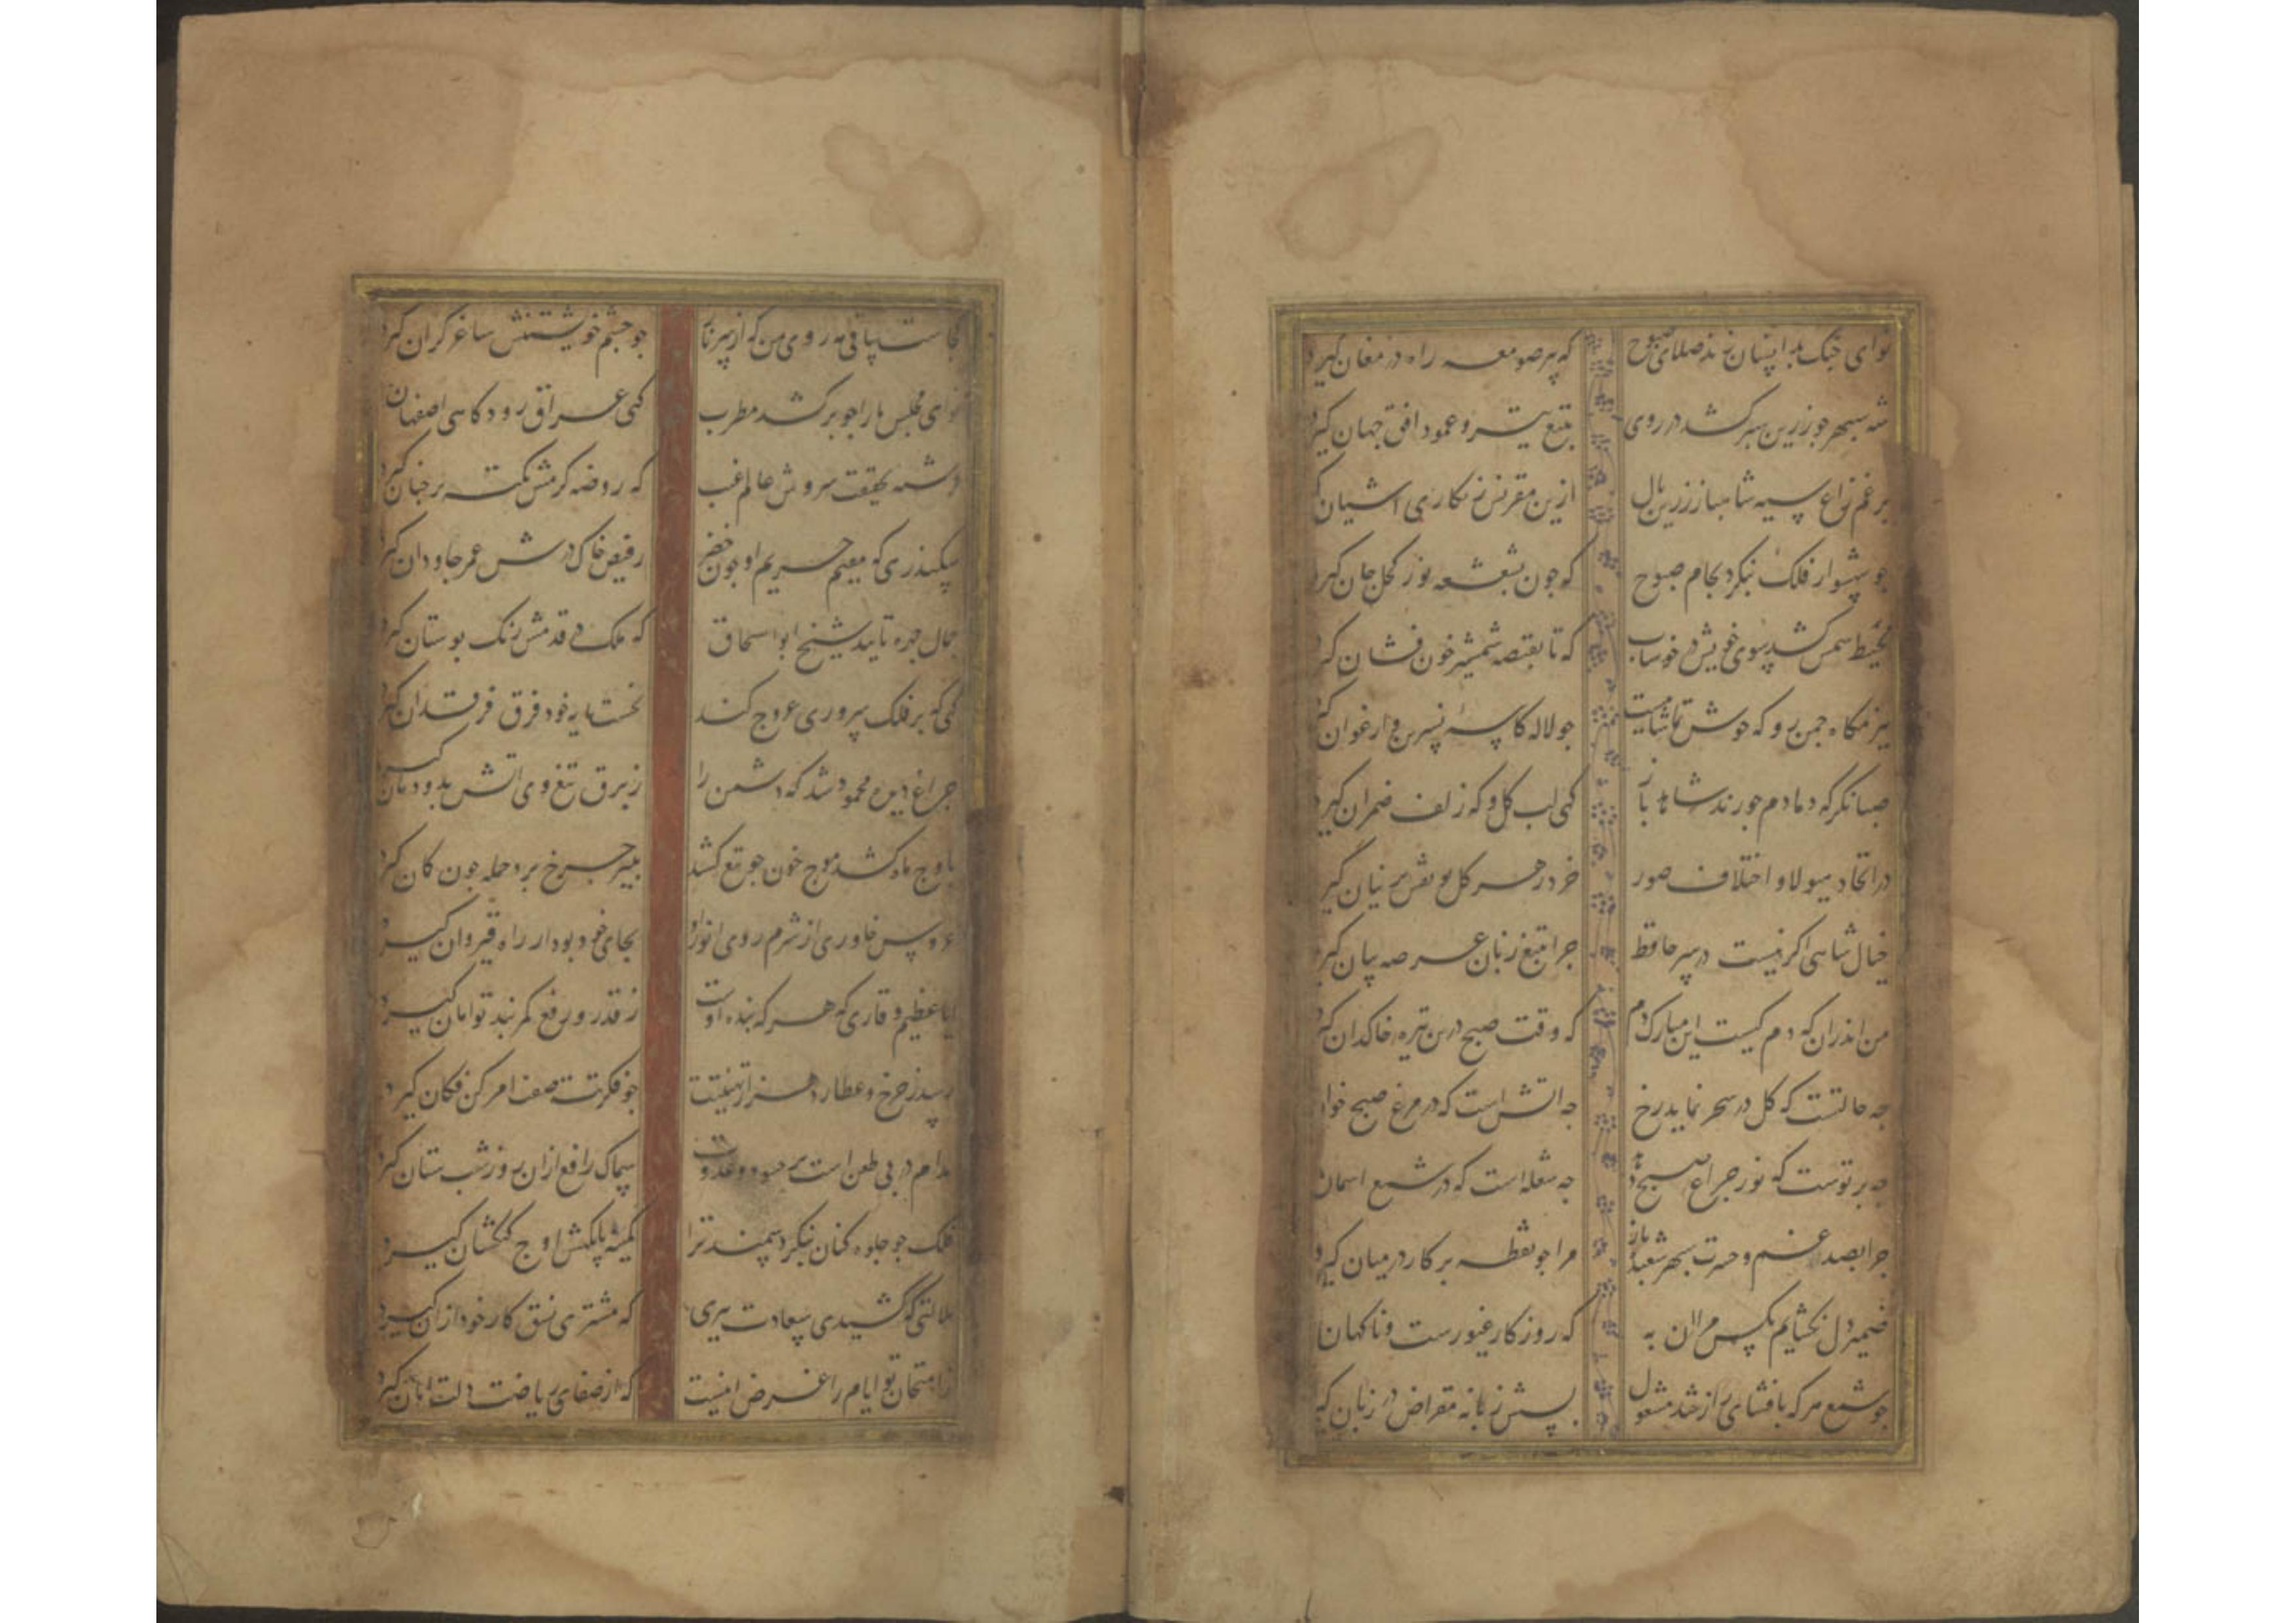 نوای چنک بدانسان زند صلای صبوح که پیر صومعه راه در مغان گیرد
شه سپهر جو زرین سپر کشد در روی بتیغ و عمود افق جهان گیرد
برغم زاغ سیه شاهباز زرین بال ازین مقرنس زنکاری اشیان گیرد
جو شهسوار فلک نبکرد بجام صبوح که جون بشعشعه نور کحل جان گیرد
محیط شمس کشد سوی خویش در خوشاب که تا بقبضه شمشیر خون فشان گیرد
ببزمکاه جمن رو که خوش تماشاییست جو لاله کاسه نسرین و ارغوان گیرد
صبا نکر که دمادم جو رند شاهد باز کهی لب کل و که زلف ضمران گیرد
در اتحاد هیولا و اختلاف صور خرد ز هر کل نو نقش بر نیان گیرد
خیال شاهی اکر نیست در سر حافظ جرا بتیغ زبان عرصه بیان گیرد
من اندران که دم کیست این مبارک دم که وقت صبح درین تیره خاکدان گیرد
جه حالتست که کل در سحر نماید رخ جه اتش است که در مرغ صبح خوان
جه برتوست که نور جراغ صبح دهد جه شعله است که در شمع اسمان
جرا بصد غم و حسرت سپهر شعبده باز مرا جو نقطه برکار در میان گیرد
ضمیر دل نکشایم بکس مرا ان به که روزکار غیورست و ناکهان
جو شمع هر که بافشای راز شد مشغول بسش زبانه مقراض در زبان گیرد
کجاست ساقی مه روی من که از سر جو جشم خویشتنش ساغر کران گیرد
نوای مجلس ما را جو بر کشد مطرب کهی عراق زند کاهی اصفهان
فرشته بحقیقت سروش عالم غیب که روضه کرمش نکته بر جنان گیرد
سکندری که مقیم حریم او جون خضر ز فیض خاک درش عمر جاودان گیرد
جمال جهره تایید شیخ ابو اسحاق که ملک در قدمش رنک بوستان گیرد
کهی که بر فلک سروری عروج کند نخست بایه خود فرق فرقدان گیرد
جراغ دیده محمود شد که دشمن را ز برق تیغ وی اتش بدودمان گیرد
باوج ماه کشد موج خون جو تیغ کشد بتیر جرخ برد حمله جون کمان گیرد
عروس خاوری از شرم روی انور او بجای خود بود ار راه قیروان گیرد
ایا عظیم وقاری که هر که بنده اوست ز قدر و رفع کمر بند توامان گیرد
رسد ز جرخ و عطارد هزار تهنیتت جو فکرتت صفت امر کن فکان گیرد
مدام در بی طعن است بر حسود و عدوت سماک رامح ازان روز و شب سنان گیرد
فلک جو جلوه کنان نبکرد سمند ترا کمینه بایکهش اوج کهکشان گیرد
ملالتی که کشیدی سعادت که مشتری نسق کار خود ازان گیرد
از امتحان تو ایام را غرض انیست که از صفای ریاضت دلت گیرد